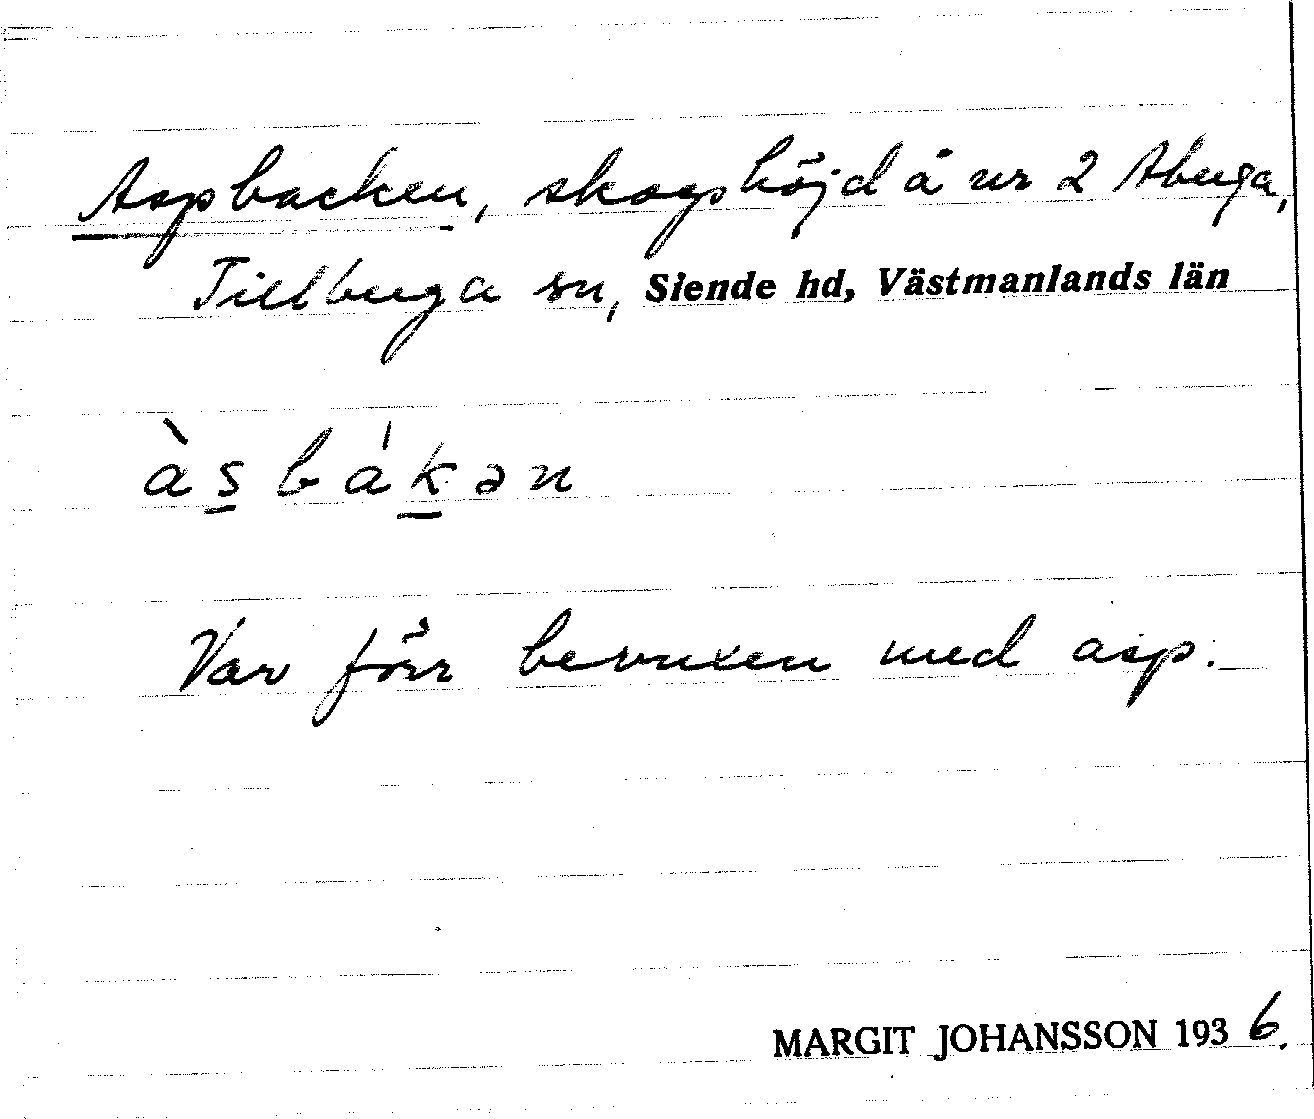 Aspbacken, skogshöjd å nr 2 Abuga,
Tillbuga sn, Siende hd, Västmanlands län
às̲bák̲ən
Var förr bevuxen med asp.
MARGIT JOHANSSON 1936.